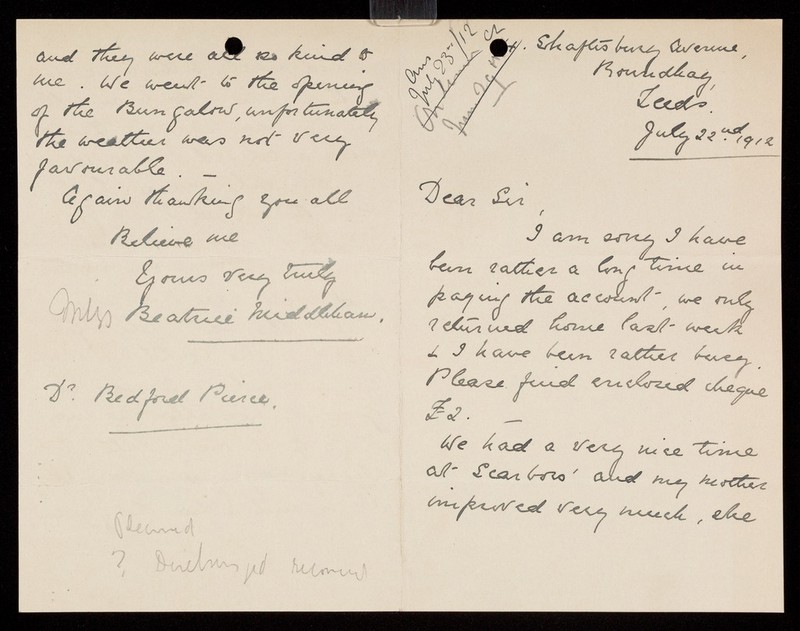 Shaftsbury Avenue,
Roundhay,
Leeds.
July 22nd. 1912
Ans
July 23rd/12
Dear Sir,
I am sorry I have
been rather a long time in
paying the account, we only
returned home last week
& I have been rather busy.
Please find enclosed cheque
£2. —
We had a very nice time
at Scarboro' and my mother
improved very much, she
and they were all so kind to
me. We went to the opening
of the Bungalow, unfortunately
the weather was not very
favourable. —
Again thanking you all
Believe me
Yours very truly
Beatrice Middleham.
Dr. Bedford Pierce.
? Discharged recovered